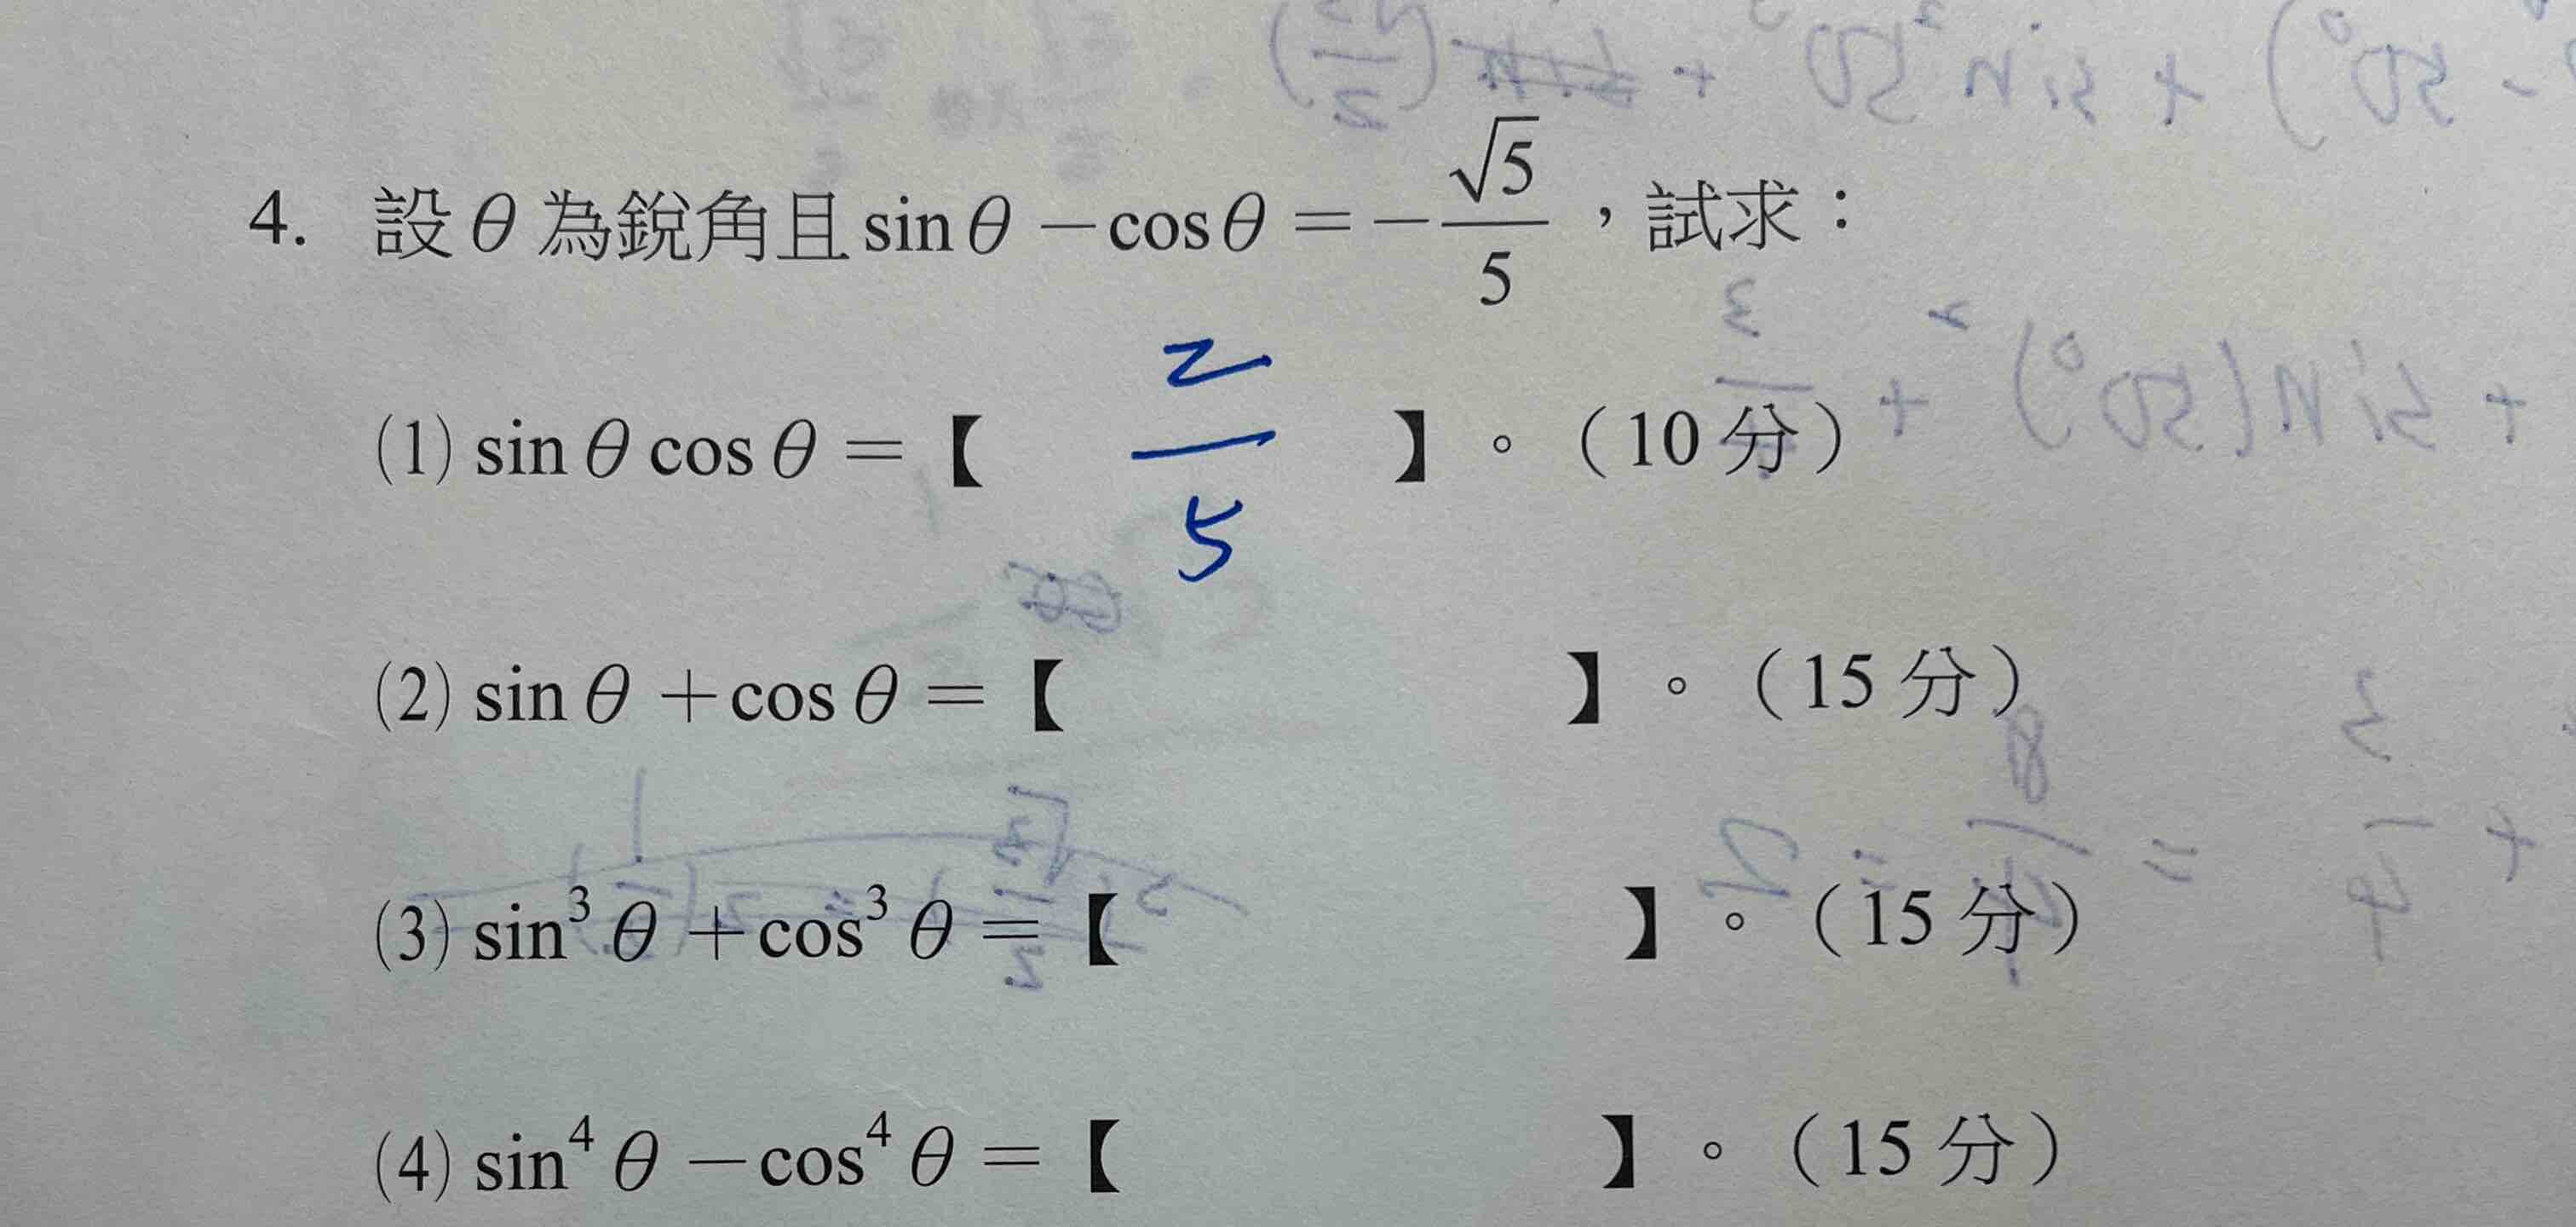 4. 設 θ 為銳角且 sin θ − cos θ = −√5/5，試求：
(1) sin θ cos θ =【 2/5 】。（10 分）
(2) sin θ + cos θ =【 】。（15 分）
(3) sin³ θ + cos³ θ =【 】。（15 分）
(4) sin⁴ θ − cos⁴ θ =【 】。（15 分）